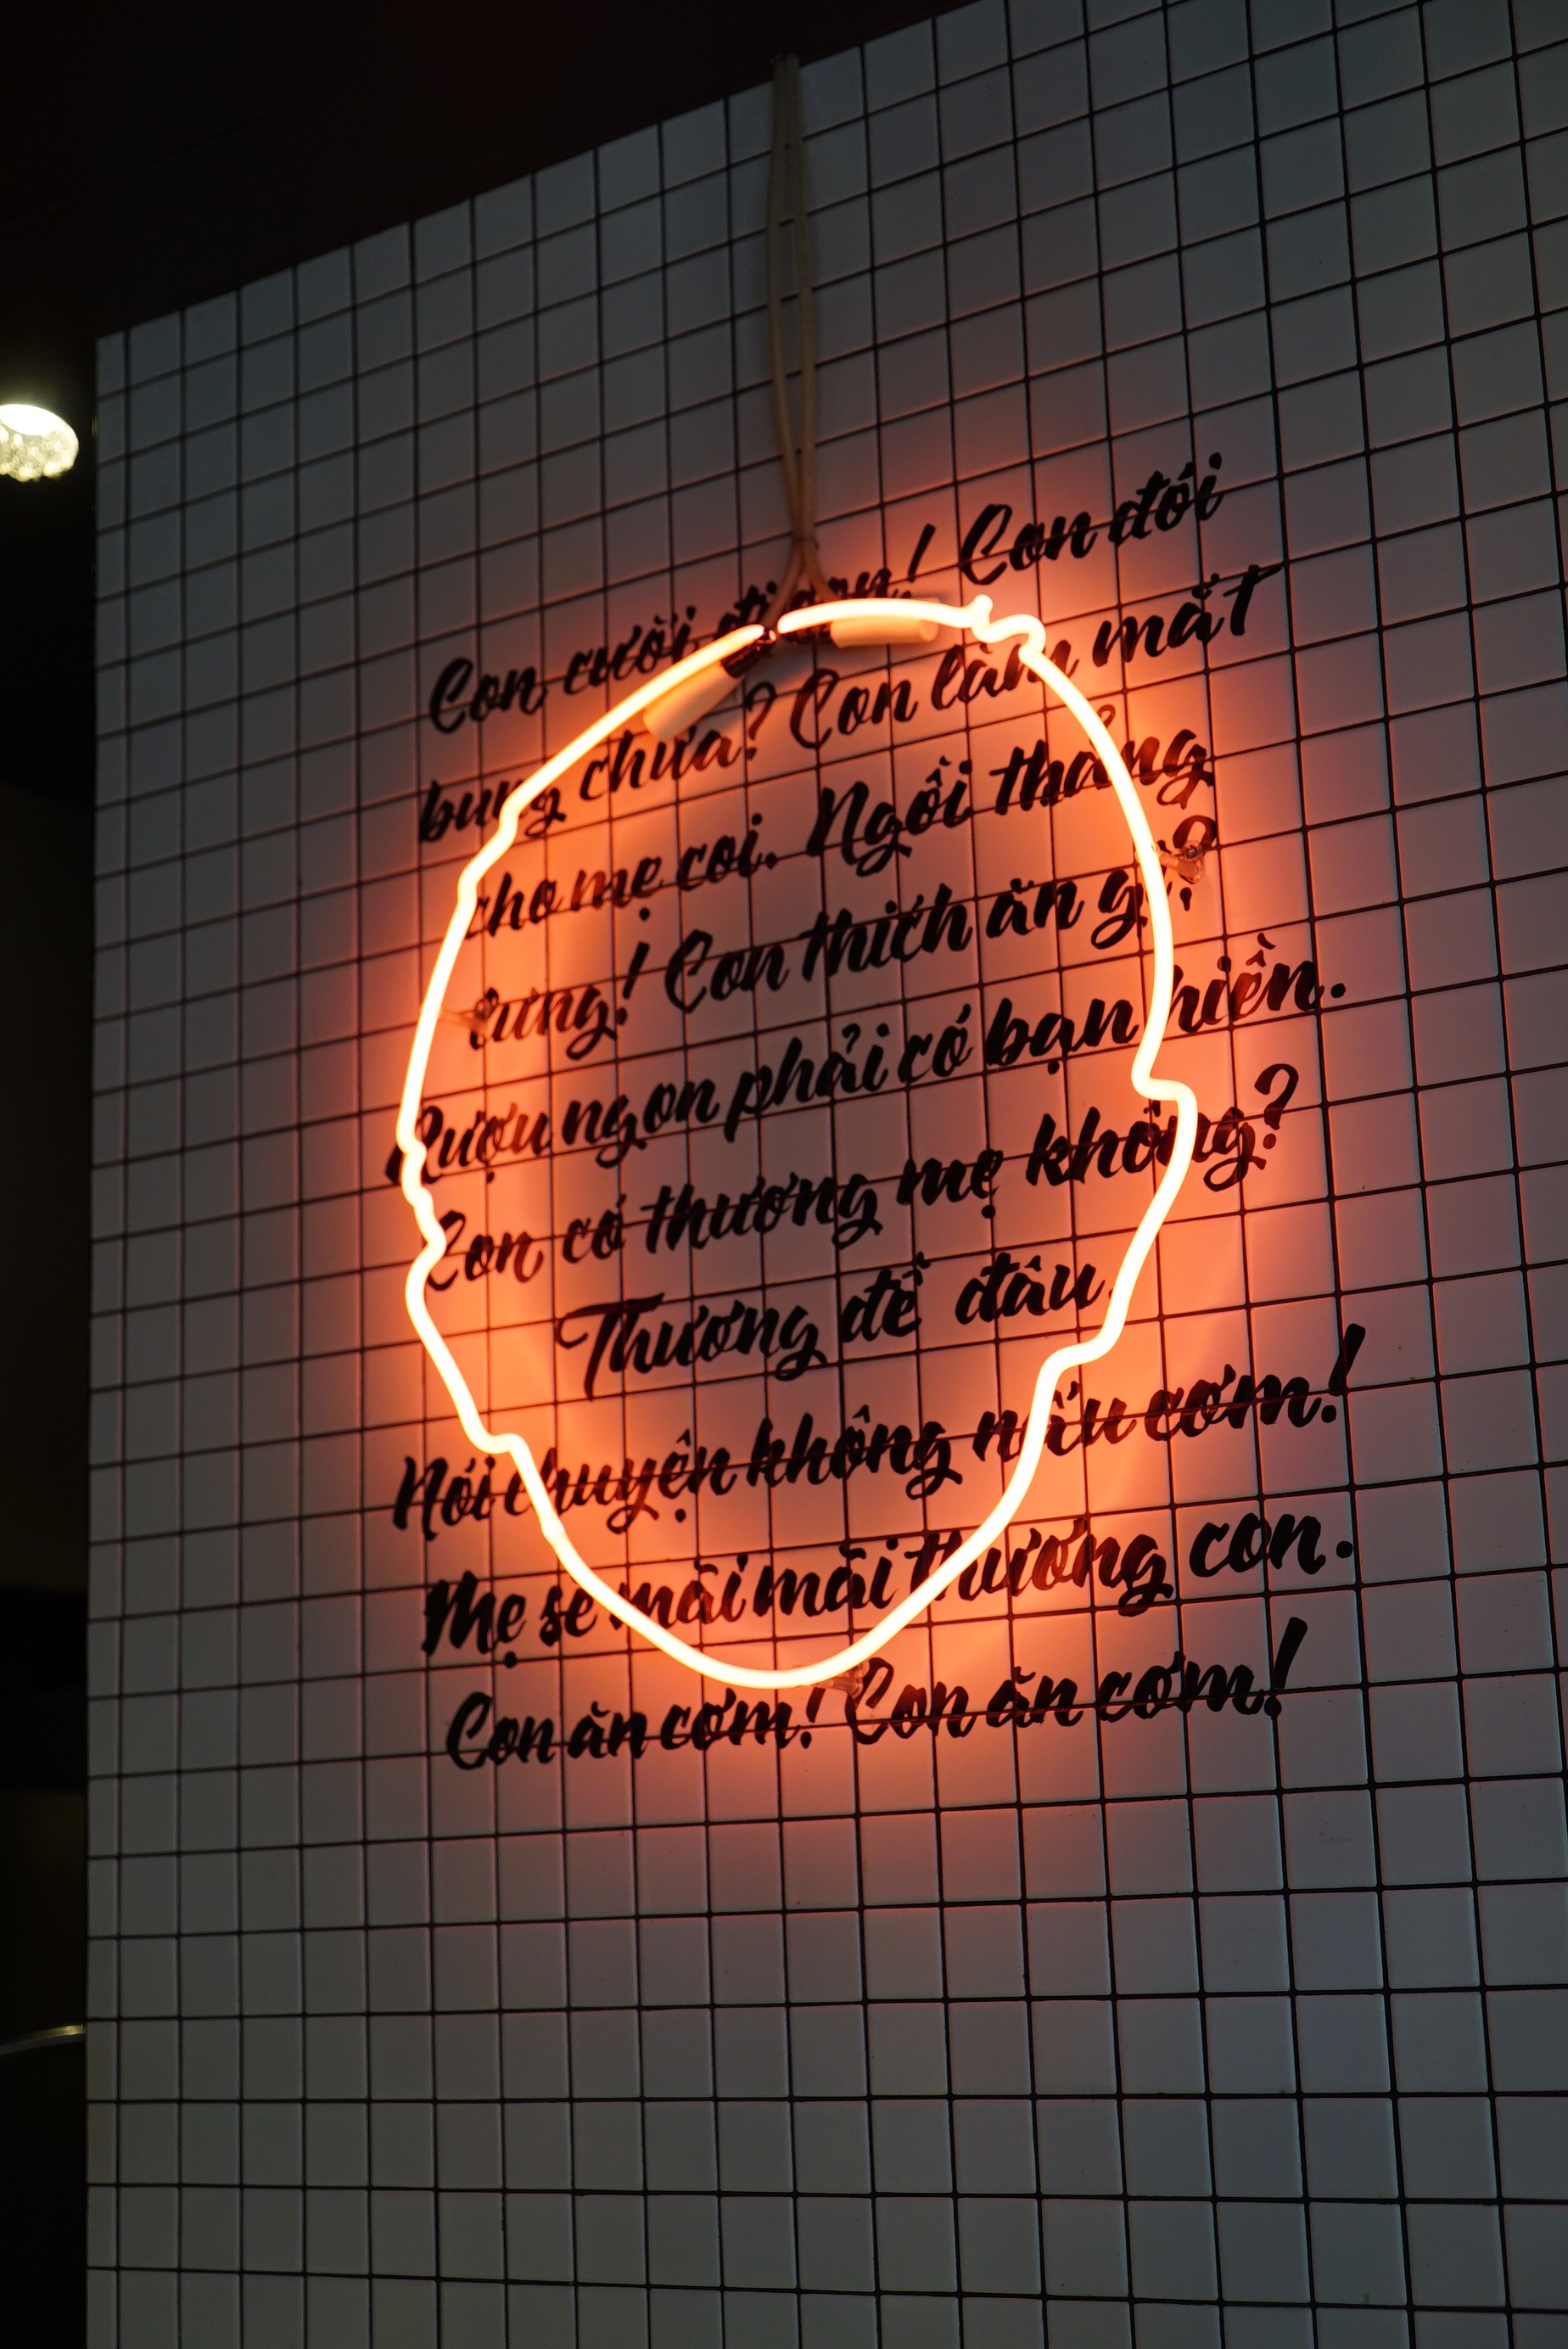 Con cười đi con! Con đói
bụng chưa? Con làm mất
cho mẹ coi. Ngồi thẳng
lưng! Con thích ăn gì?
Rượu ngon phải có bạn hiền.
Con có thương mẹ không?
Thương để đâu
Nói chuyện không nấu cơm!
Mẹ sẽ mãi mãi thương con.
Con ăn cơm! Con ăn cơm!